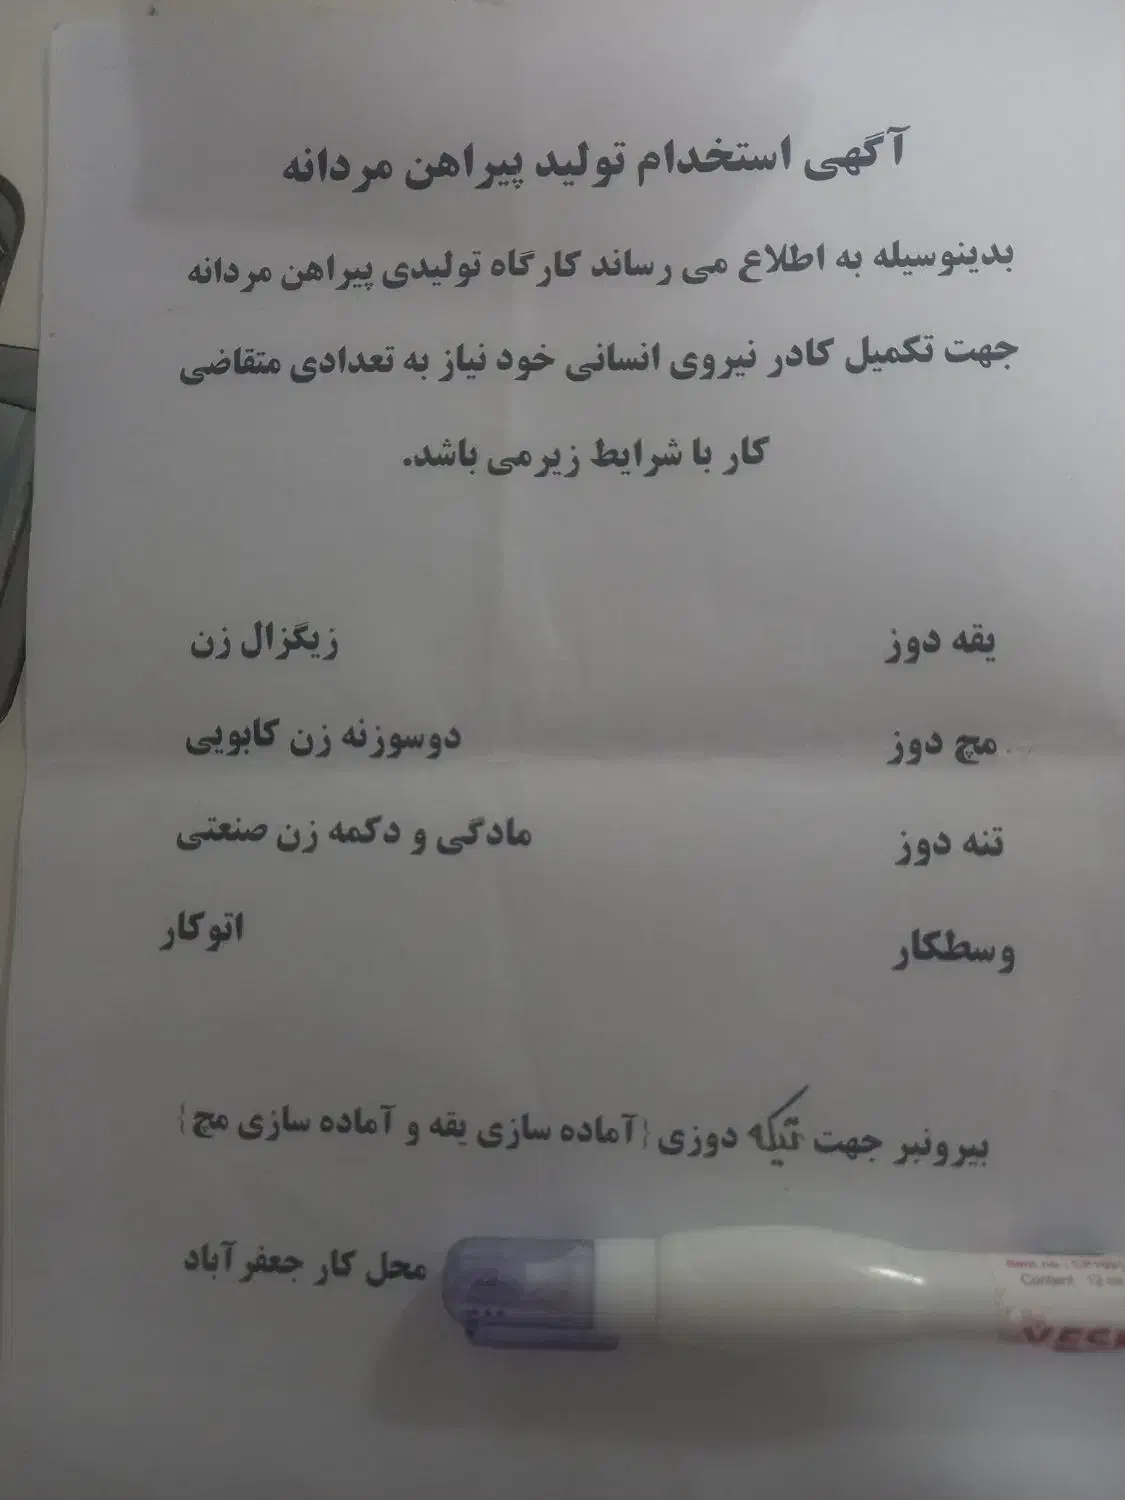 آگهی استخدام تولید پیراهن مردانه
بدینوسیله به اطلاع می رساند کارگاه تولیدی پیراهن مردانه
جهت تکمیل کادر نیروی انسانی خود نیاز به تعدادی متقاضی
کار با شرایط زیرمی باشد.
یقه دوز
زیگزال زن
مچ دوز
دوسوزنه زن کابویی
تنه دوز
مادگی و دکمه زن صنعتی
وسطکار
اتوکار
بیرونبر جهت تیکه دوزی {آماده سازی یقه و آماده سازی مچ}
محل کار جعفرآباد
Content 12